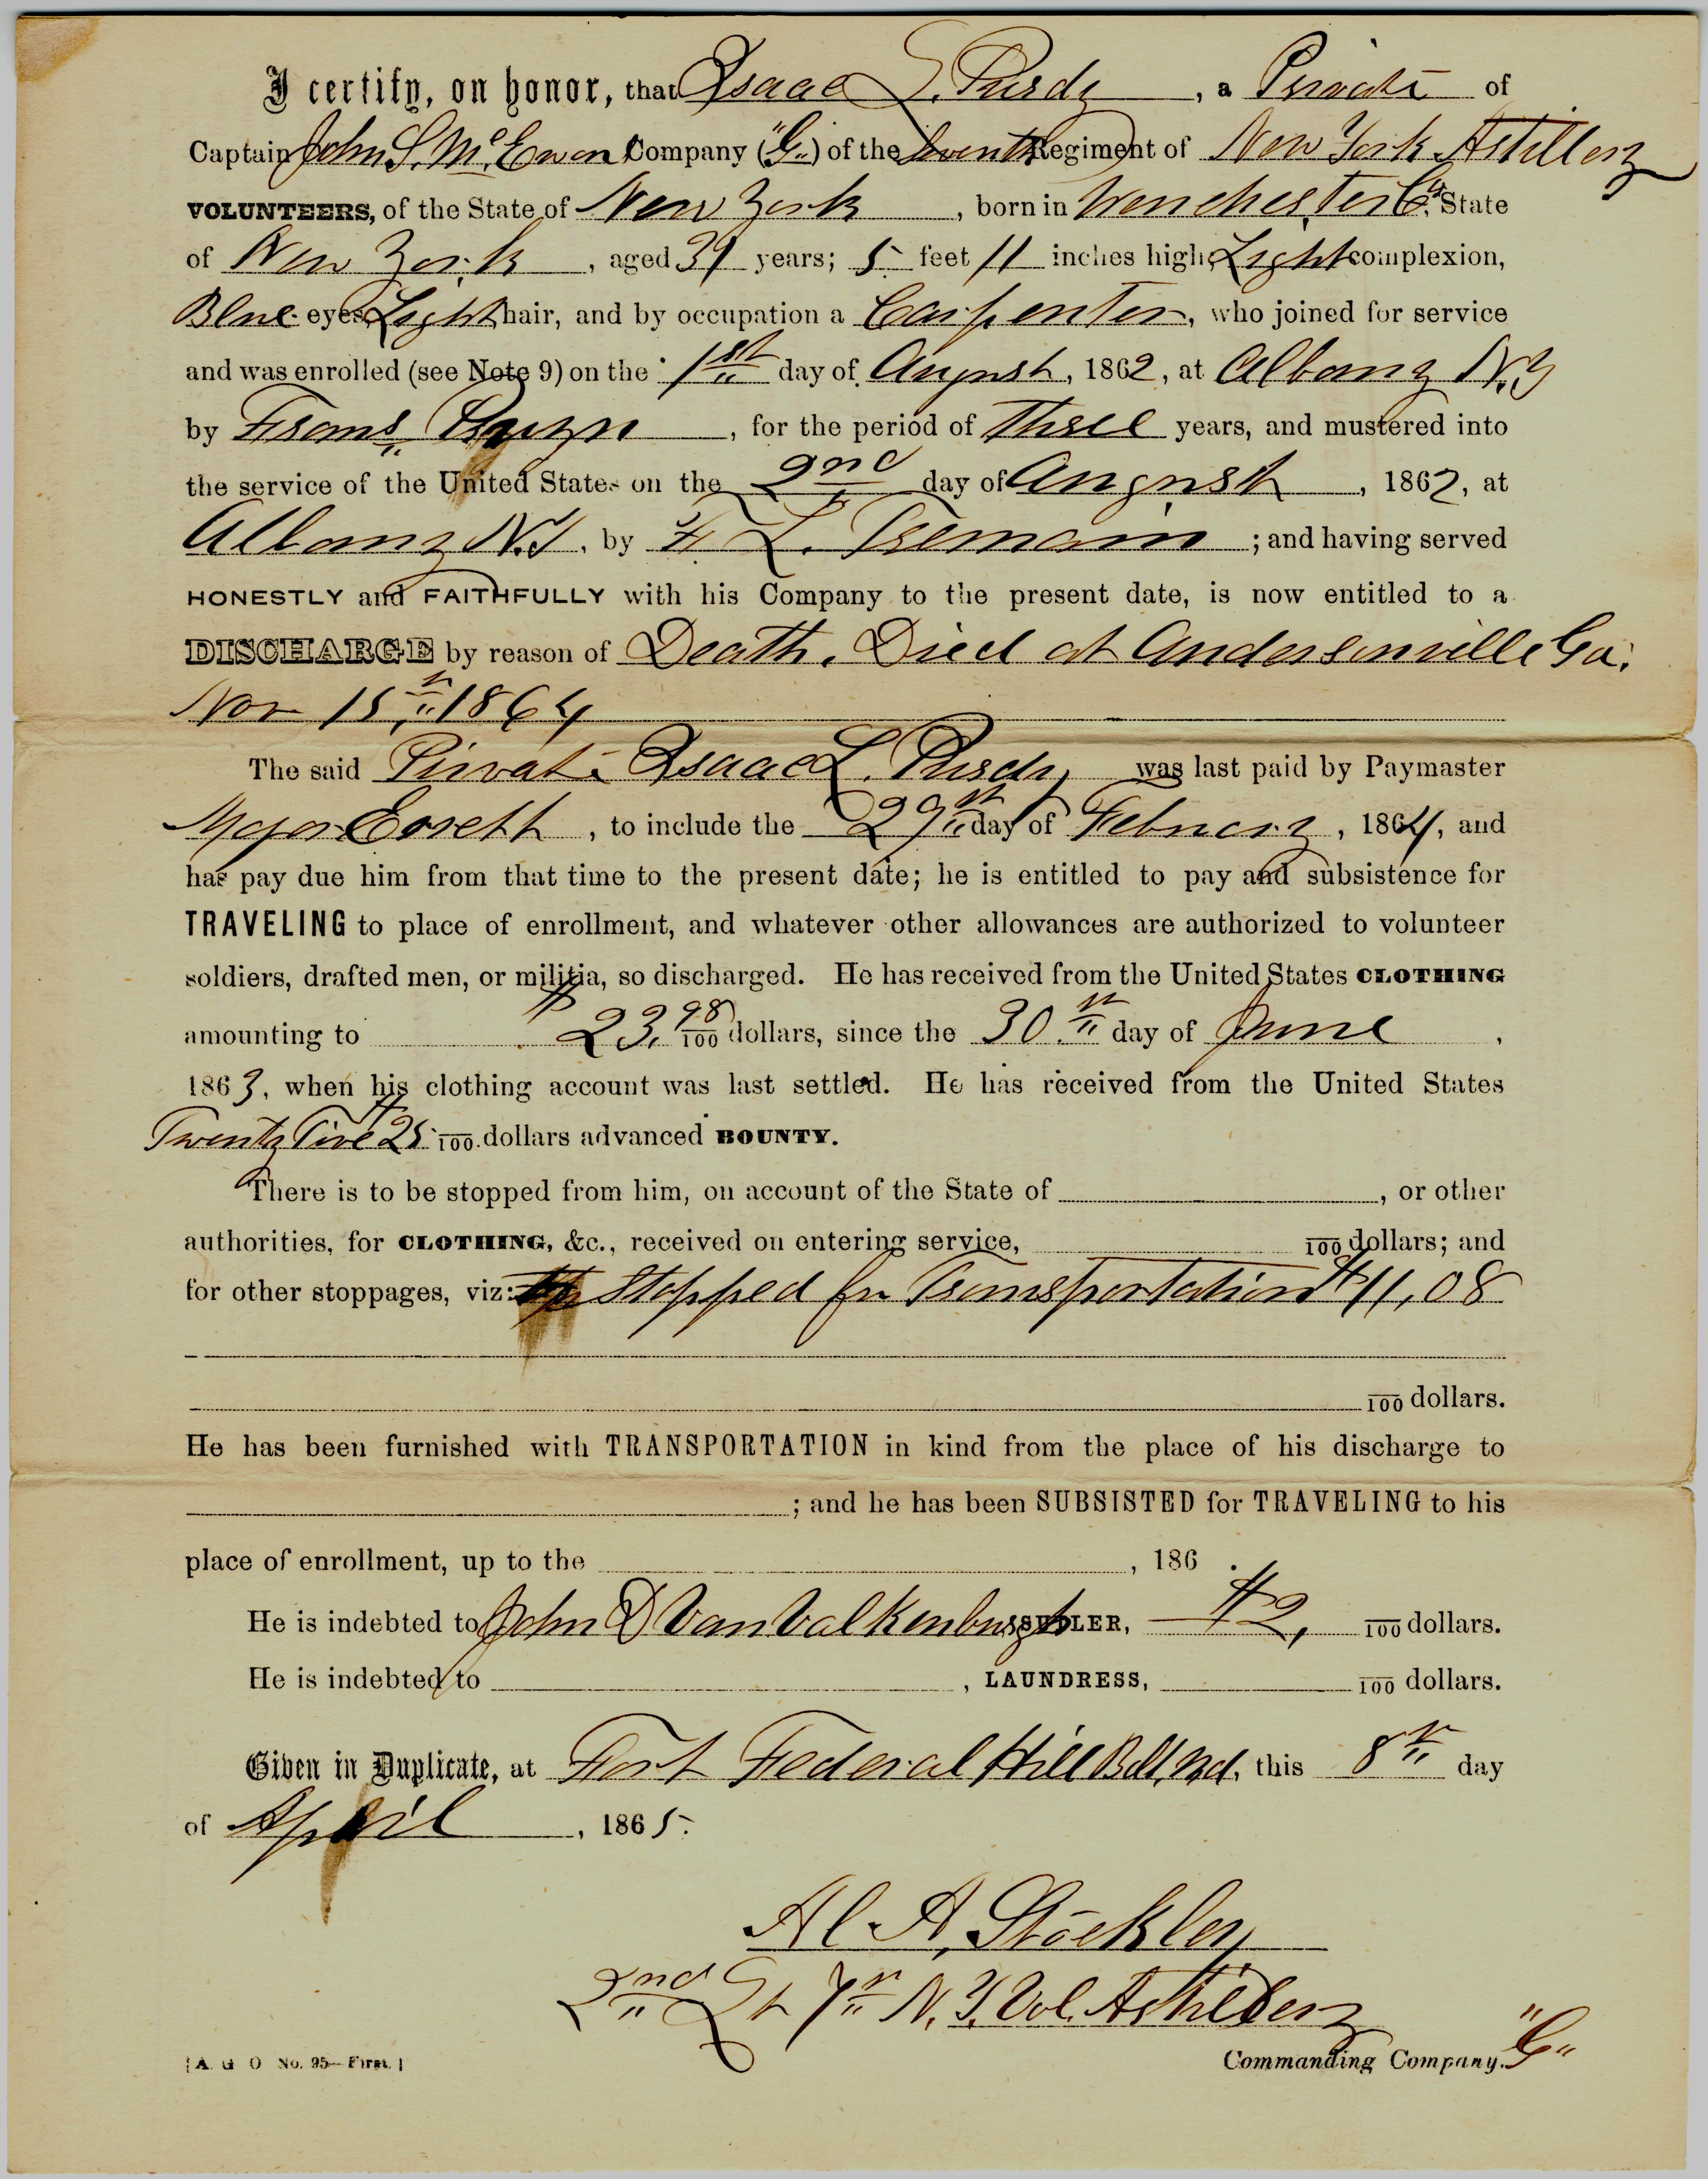 I certify, on honor, that Isaac L. Purdy, a Private of
Captain John S. McEwen Company ("G") of the Seventh Regiment of New York Artillery
VOLUNTEERS, of the State of New York, born in Westchester Co. State
of New York, aged 39 years; 5 feet 11 inches high, Light complexion,
Blue eyes, Light hair, and by occupation a Carpenter, who joined for service
and was enrolled (see Note 9) on the 1st day of August, 1862, at Albany N.Y
by Frans Pruyn, for the period of Three years, and mustered into
the service of the United States on the 2nd day of August, 1862, at
Albany N.Y. by F. L. Tremain; and having served
HONESTLY and FAITHFULLY with his Company to the present date, is now entitled to a
DISCHARGE by reason of Death. Died at Andersonville Ga.
Nov 15th 1864
The said Private Isaac L. Purdy was last paid by Paymaster
Major, to include the 29th day of February, 1864, and
has pay due him from that time to the present date; he is entitled to pay and subsistence for
TRAVELING to place of enrollment, and whatever other allowances are authorized to volunteer
soldiers, drafted men, or militia, so discharged. He has received from the United States CLOTHING
amounting to $23. 98/100 dollars, since the 30th day of June,
1863, when his clothing account was last settled. He has received from the United States
Twenty Five $25 /100 dollars advanced BOUNTY.
There is to be stopped from him, on account of the State of , or other
authorities, for CLOTHING, &c., received on entering service, /100 dollars; and
for other stoppages, viz: Stopped for Transportation $11,08
/100 dollars.
He has been furnished with TRANSPORTATION in kind from the place of his discharge to
; and he has been SUBSISTED for TRAVELING to his
place of enrollment, up to the , 186 .
He is indebted to John D VanValkenburgh SUTLER, $2, /100 dollars.
He is indebted to , LAUNDRESS, /100 dollars.
Given in Duplicate, at Fort Federal Hill Balt. Md. this 8th day
of April, 1865.
Al. A. Stöckley
2nd Lt 7th N.Y. Vol. Artillery
[A. G. O. No. 95—First.] Commanding Company. "G"